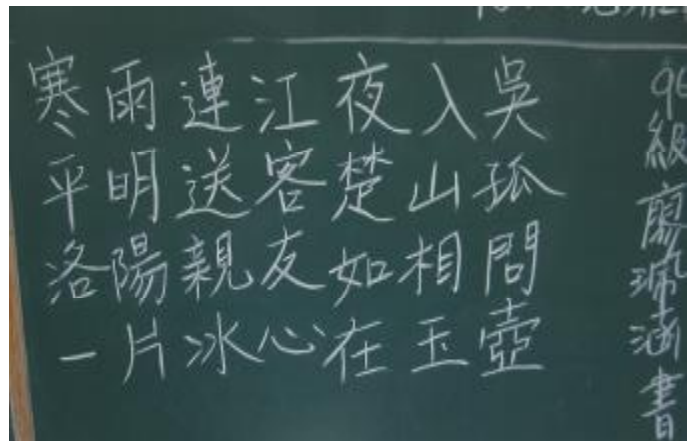 寒雨連江夜入吳
平明送客楚山孤
洛陽親友如相問
一片冰心在玉壺
96級廖珮涵書